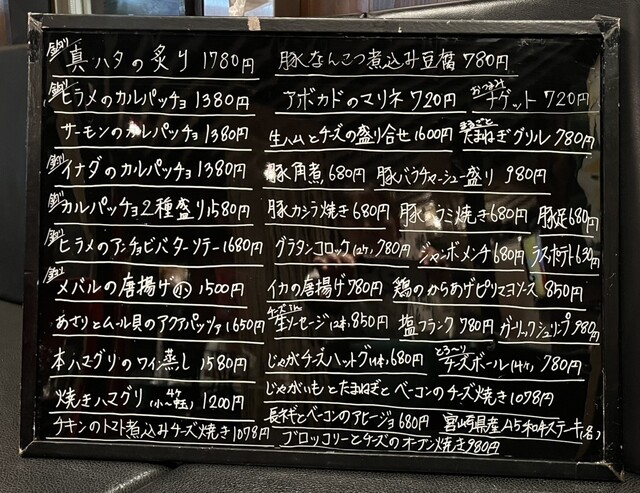 釣り 真ハタの炙り 1780円
釣り ヒラメのカルパッチョ 1380円
サーモンのカルパッチョ 1380円
釣り イナダのカルパッチョ 1380円
釣り カルパッチョ2種盛り 1580円
釣り ヒラメのアンチョビバターソテー 1680円
釣り メバルの唐揚げ 小 1500円
あさりとムール貝のアクアパッツァ 1650円
本ハマグリのワイン蒸し 1580円
焼きハマグリ 1200円
チキンのトマト煮込みチーズ焼き 1078円
豚なんこつ煮込み豆腐 780円
アボカドのマリネ 720円 おつまみ ナゲット 720円
生ハムとチーズの盛り合せ 1600円 まるごと たまねぎグリル 780円
豚角煮 680円 豚バラチャーシュー盛り 980円
豚カシラ焼き 680円 豚ハラミ焼き 680円 豚足 680円
グラタンコロッケ(2ヶ) 780円 ジャンボメンチ 680円 ラスポテト 630円
イカの唐揚げ 780円 鶏のからあげピリマヨソース 850円
チーズ入り 生ソーセージ(2本) 850円 塩フランク 780円 ガーリックシュリンプ 980円
じゃがチーズハットグ(1本) 680円 とろ〜り チーズボール(4ヶ) 780円
じゃがいもとたまねぎとベーコンのチーズ焼き 1078円
長ネギとベーコンのアヒージョ 680円 宮崎県産A5和牛ステーキ
ブロッコリーとチーズのオーブン焼き 980円